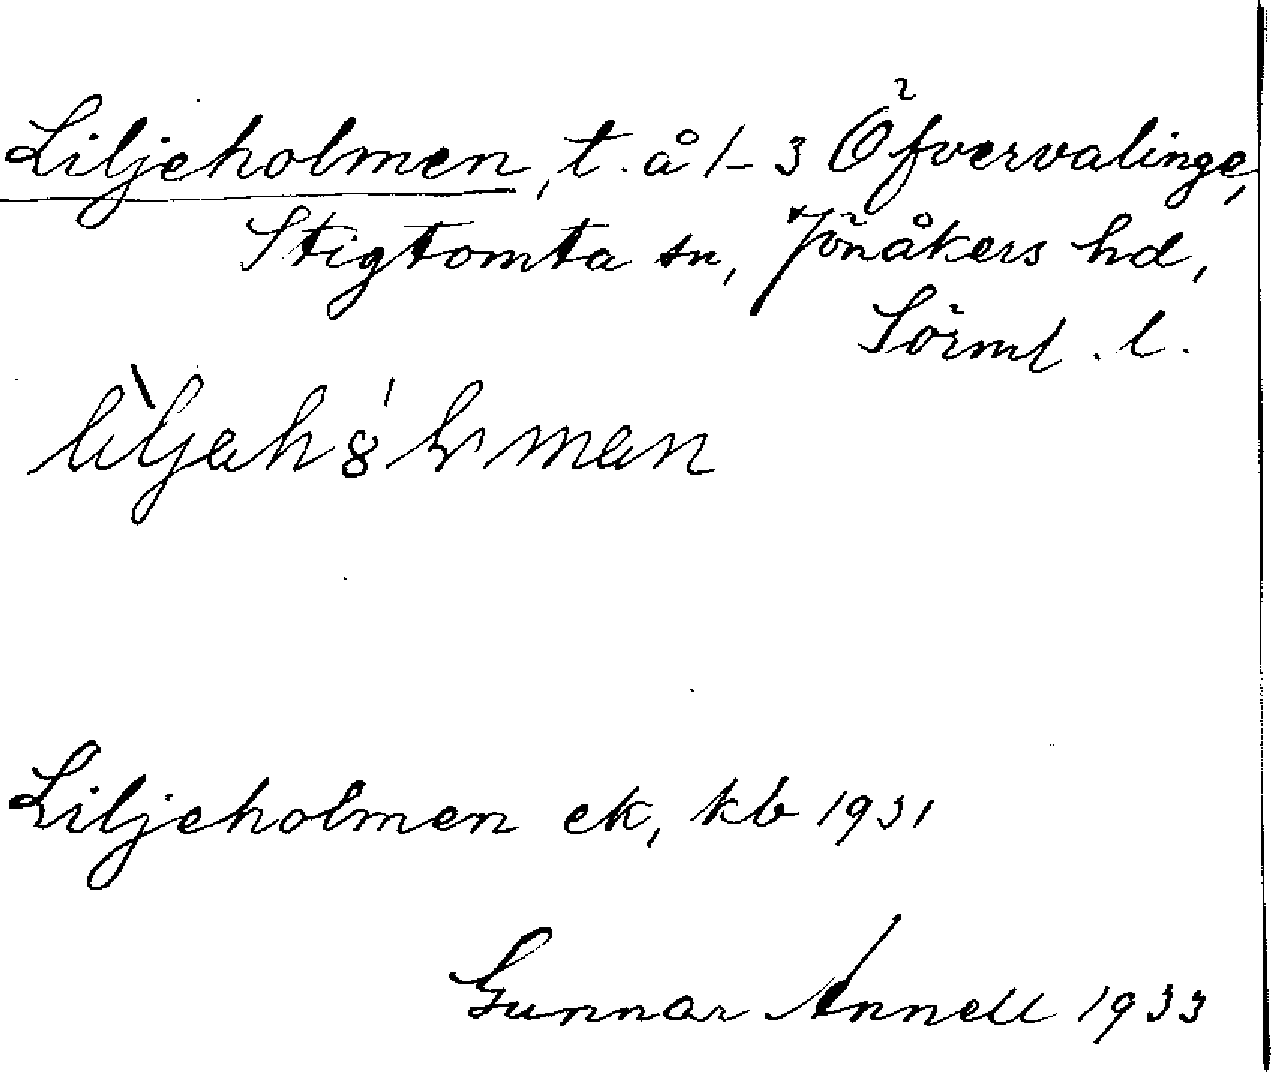 Liljeholmen, t. å 1–3 Öfvervalinge,
Stigtomta sn, Jönåkers hd,
Sörml. l.
Liljeholmen ek, kb 1931
Gunnar Annell 1933